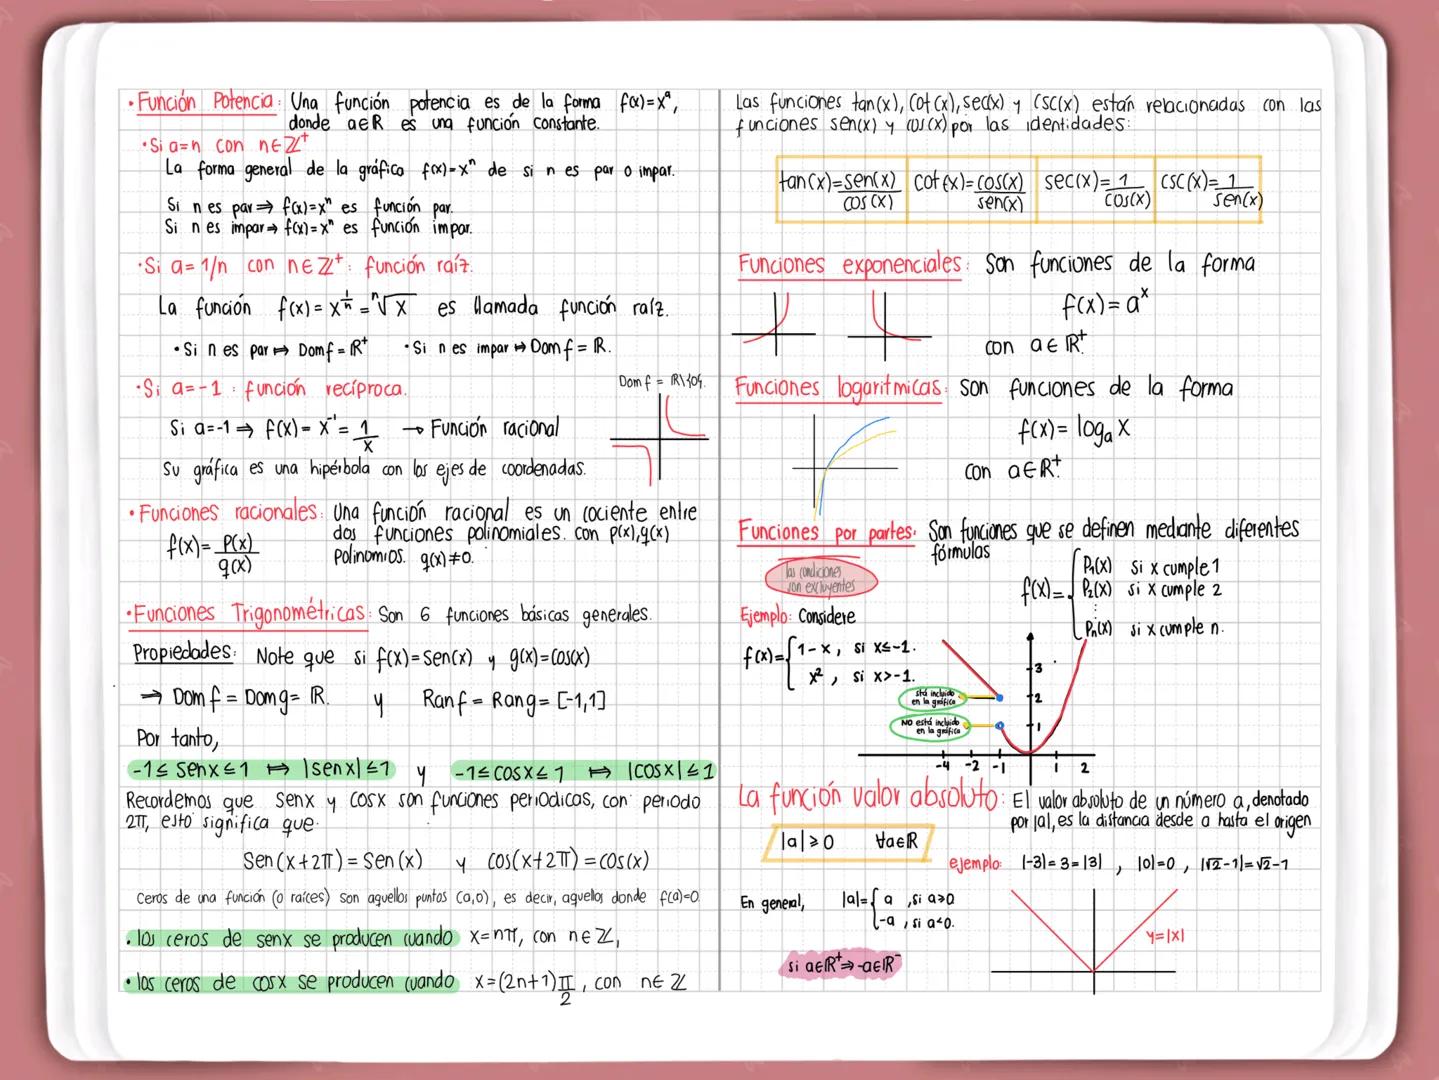 • Función Potencia: Una función potencia es de la forma f(x)=xᵃ,
donde a∈R es una función constante.
• Si a=n con n∈ℤ⁺
La forma general de la gráfica f(x)=xⁿ de si n es par o impar.
Si n es par ⇒ f(x)=xⁿ es función par.
Si n es impar ⇒ f(x)=xⁿ es función impar.
• Si a=1/n con n∈ℤ⁺: función raíz.
La función f(x) = x^(1/n) = ⁿ√x es llamada función raíz.
• Si n es par ↦ Dom f = ℝ⁺ • Si n es impar ↦ Dom f = ℝ.
• Si a=-1: función recíproca.
Dom f = ℝ\{0}.
Si a=-1 ⇒ f(x) = x⁻¹ = 1/x → Función racional
Su gráfica es una hipérbola con los ejes de coordenadas.
• Funciones racionales: Una función racional es un cociente entre
dos funciones polinomiales. con p(x), q(x)
polinomios. q(x)≠0.
f(x) = p(x)/q(x)
• Funciones Trigonométricas: Son 6 funciones básicas generales.
Propiedades: Note que si f(x)=Sen(x) y g(x)=cos(x)
⇒ Dom f = Dom g = ℝ. y Ran f = Ran g = [-1,1]
Por tanto,
-1≤ senx ≤1 ↦ |senx|≤1 y -1≤cosx≤1 ↦ |cosx|≤1
Recordemos que Senx y cosx son funciones periodicas, con periodo
2π, esto significa que:
Sen(x+2π) = Sen(x) y cos(x+2π) = cos(x)
Ceros de una función (o raíces) son aquellos puntos (a,0), es decir, aquellos donde f(a)=0.
• los ceros de senx se producen cuando x=nπ, con n∈ℤ,
• los ceros de cosx se producen cuando x=(2n+1)π/2, con n∈ℤ
Las funciones tan(x), cot(x), sec(x) y csc(x) están relacionadas con las
funciones sen(x) y cos(x) por las identidades:
tan(x)=sen(x)/cos(x) cot(x)=cos(x)/sen(x) sec(x)=1/cos(x) csc(x)=1/sen(x)
Funciones exponenciales: Son funciones de la forma
f(x) = aˣ
con a∈ℝ⁺.
Funciones logarítmicas: son funciones de la forma
f(x) = logₐ x
con a∈ℝ⁺.
Funciones por partes: Son funciones que se definen mediante diferentes
fórmulas
las condiciones
son excluyentes
f(x) = { P₁(x) si x cumple 1
P₂(x) si x cumple 2
⋮
Pₙ(x) si x cumple n.
Ejemplo: Considere
f(x) = { 1-x, si x≤-1.
x², si x>-1.
3
2
1
está incluido
en la gráfica
NO está incluido
en la gráfica
-4 -2 -1 1 2
La función valor absoluto: El valor absoluto de un número a, denotado
por |a|, es la distancia desde a hasta el origen
|a|≥0 ∀a∈ℝ
ejemplo: |-3|=3=|3| , |0|=0 , |√2-1|=√2-1
En general, |a| = { a , si a≥0
-a , si a<0.
y=|x|
si a∈ℝ⁺ ⇒ -a∈ℝ⁻